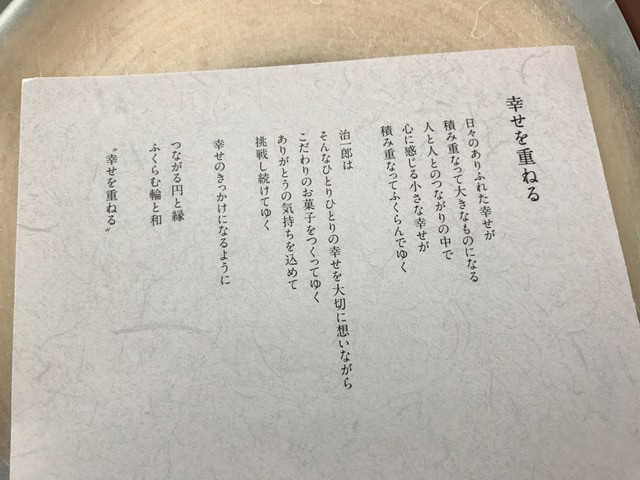 幸せを重ねる
日々のありふれた幸せが
積み重なって大きなものになる
人と人とのつながりの中で
心に感じる小さな幸せが
積み重なってふくらんでゆく
治一郎は
そんなひとりひとりの幸せを大切に想いながら
こだわりのお菓子をつくってゆく
ありがとうの気持ちを込めて
挑戦し続けてゆく
幸せのきっかけになるように
つながる円と縁
ふくらむ輪と和
〝幸せを重ねる〟